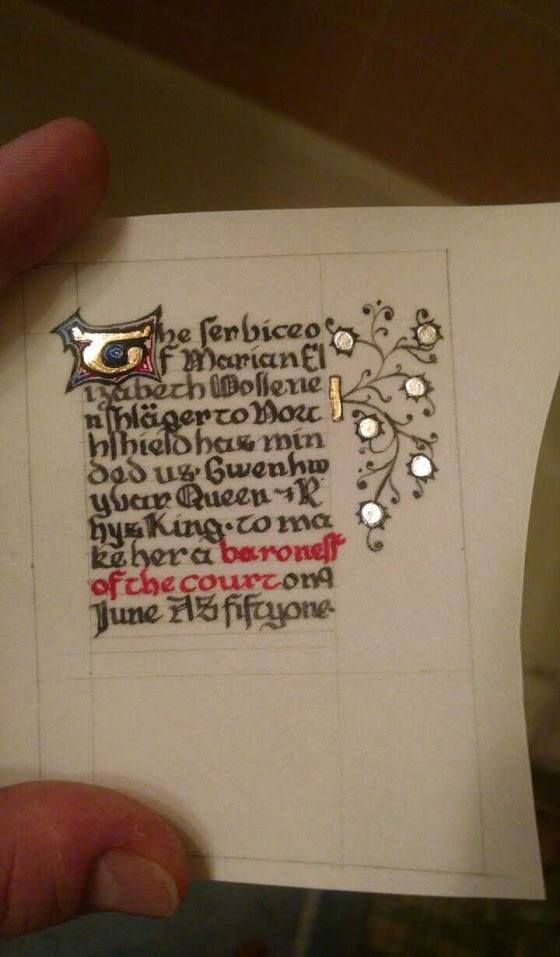 The serviceo
f Marian El
izabeth Wollene
nschläger to Nort
hshield has min
ded us Gwenhw
yvar Queen + R
hys King · to ma
ke her a baroness
of the court on 9
June AS fiftyone